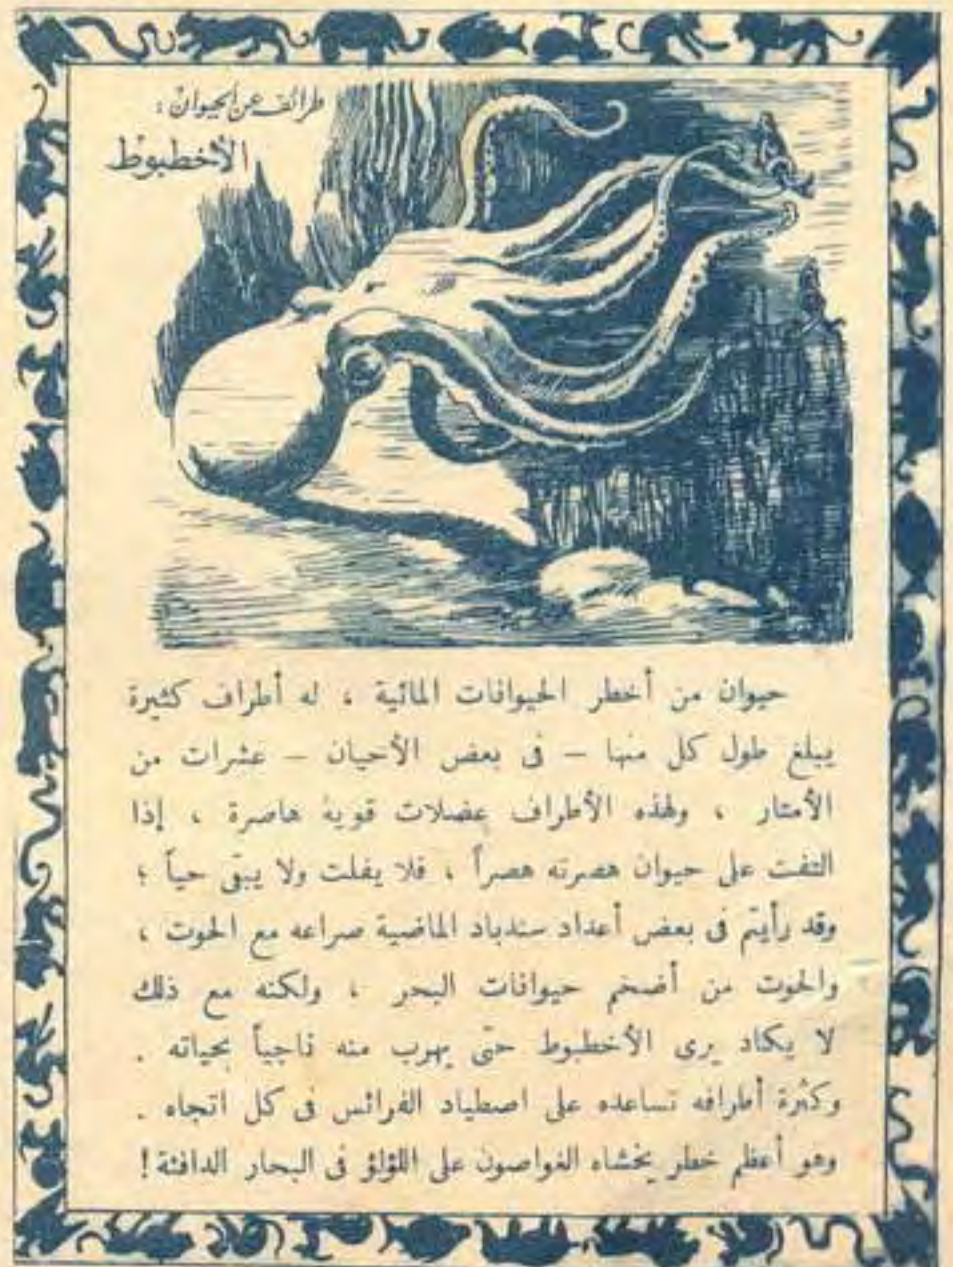 طرائف عن الحيوان :
الأخطبوط
حيوان من أخطر الحيوانات المائية ، له أطراف كثيرة
يبلغ طول كل منها – فى بعض الأحيان – عشرات من
الأمتار ، ولهذه الأطراف عضلات قوية هاصرة ، إذا
التفت على حيوان هصرته هصراً ، فلا يفلت ولا يبقى حياً ؛
وقد رأيتم فى بعض أعداد سندباد الماضية صراعه مع الحوت ،
والحوت من أضخم حيوانات البحر ، ولكنه مع ذلك
لا يكاد يرى الأخطبوط حتى يهرب منه ناجياً بحياته .
وكثرة أطرافه تساعده على اصطياد الفرائس فى كل اتجاه .
وهو أعظم خطر يخشاه الغواصون على اللؤلؤ فى البحار الدافئة !